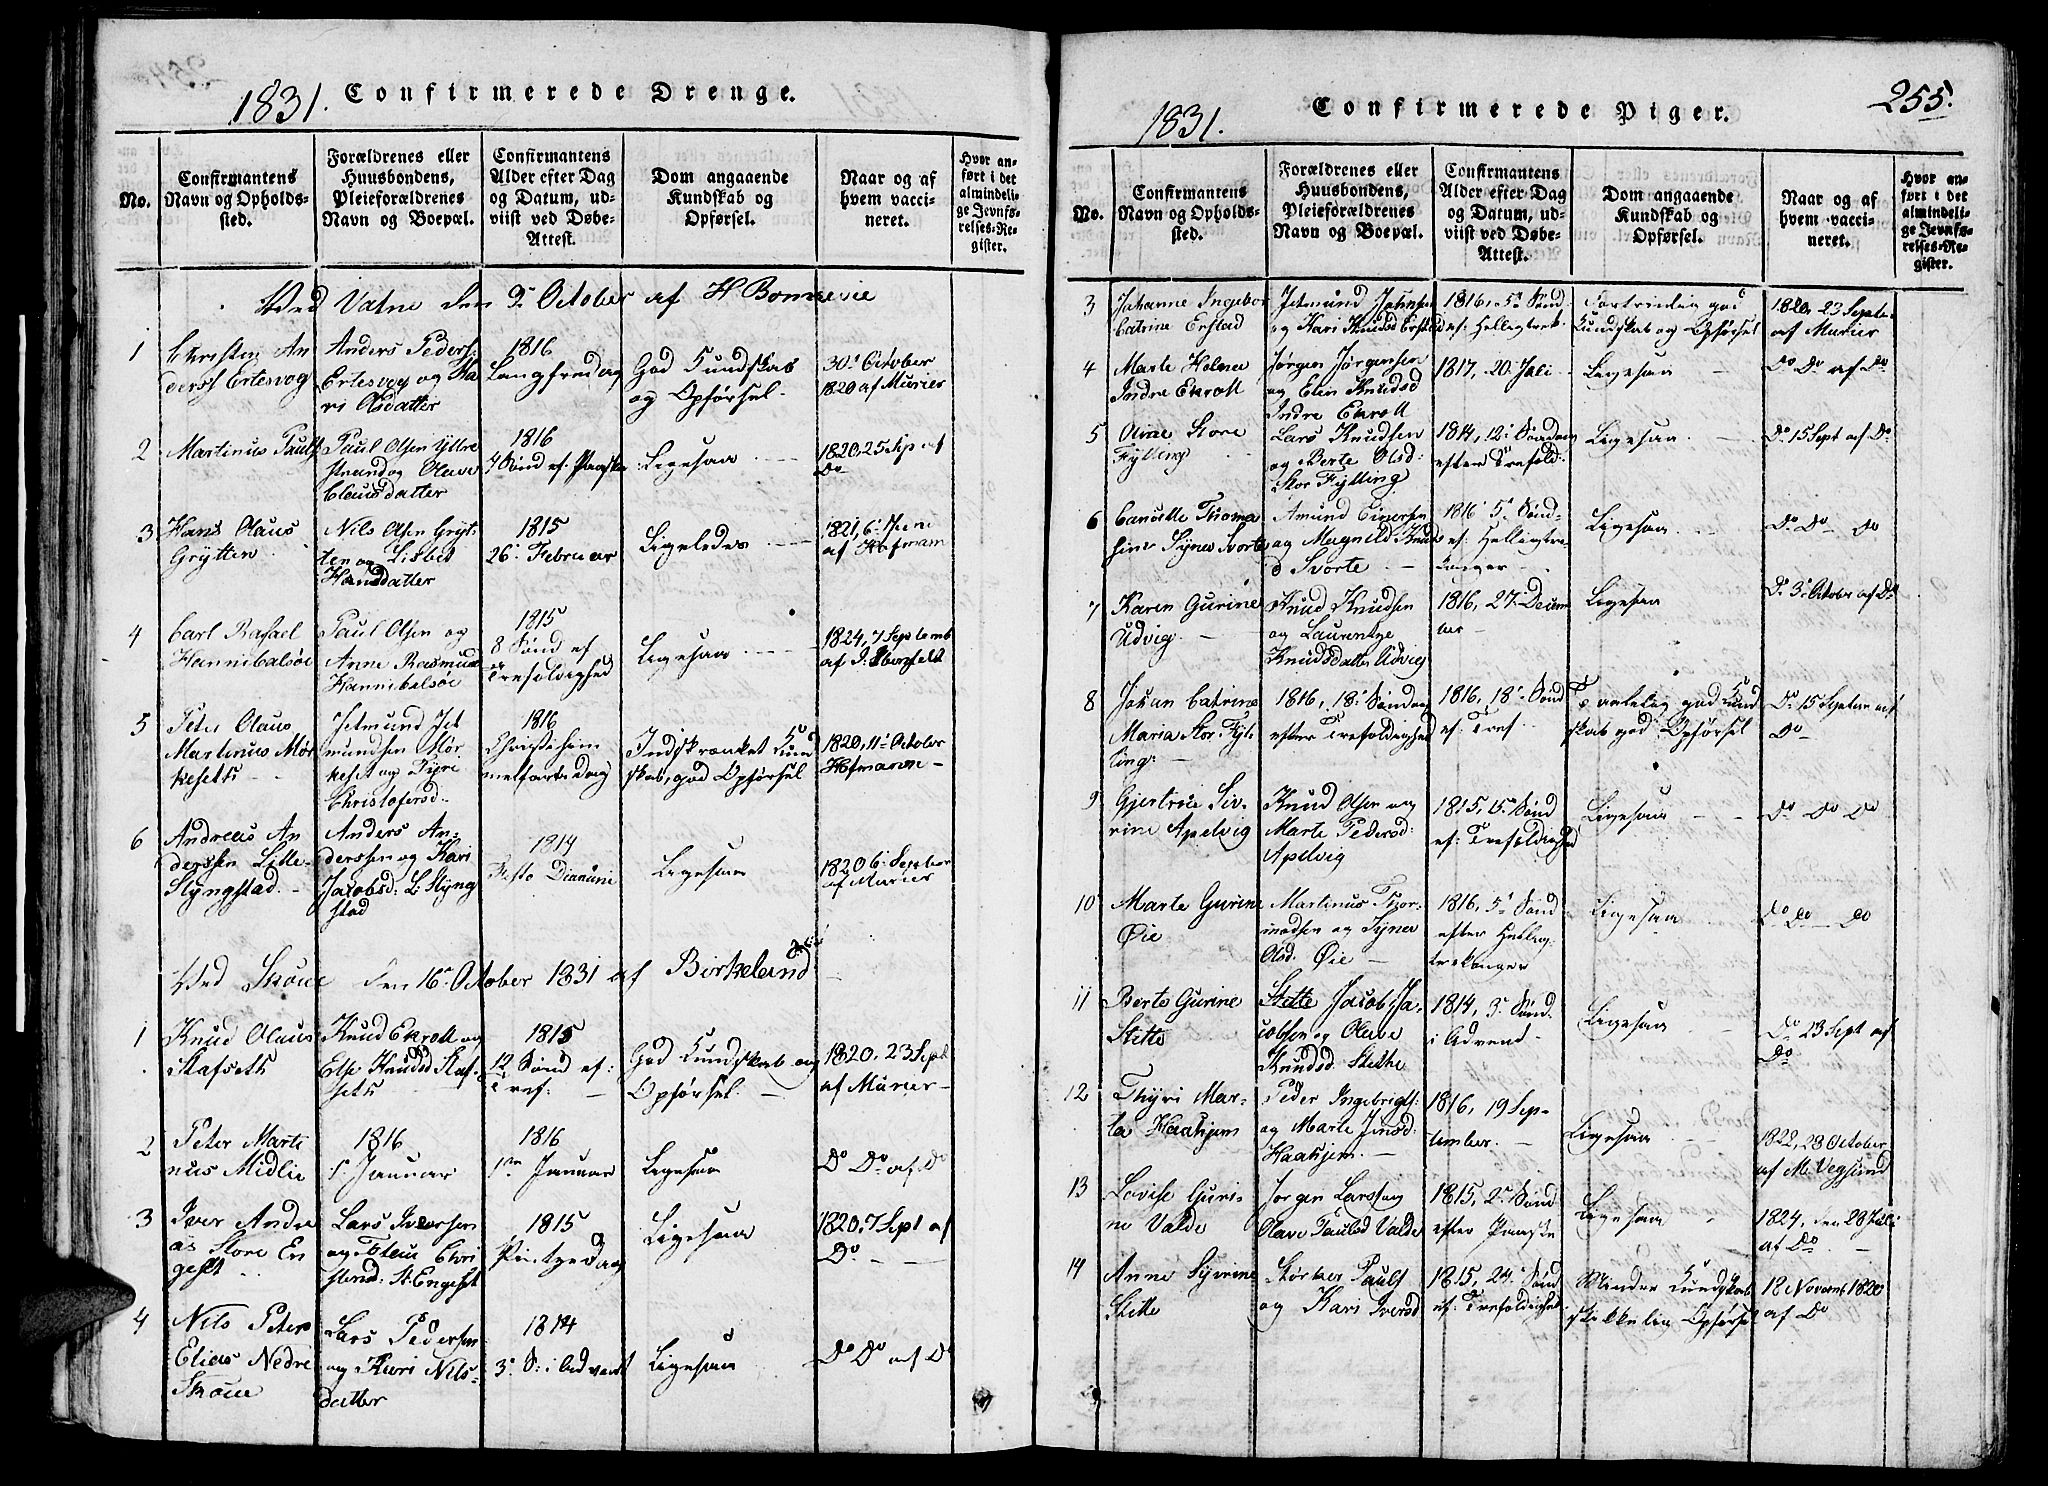 1831. Confirmerede Drenge.
No.
Confirmantens
Navn og Opholds-
sted.
Forældrenes eller
Huusbondens,
Pleieforældrenes
Navn og Boepæl.
Confirmantens
Alder efter Dag
og Datum, ud-
viist ved Døbe-
Attest.
Dom angaaende
Kundskab og
Opførsel.
Naar og af
hvem vacci-
neret.
Hvor an-
ført i det
almindeli-
ge Jevnfø-
relses-Re-
gister.
Ved Vatne den 9de October af H Bonnevie
1
Christen An
derss Ertesvog
Anders Peders:
Ertesvog og Ka
ri Olsdatter
1816
Langfredag
God Kundskab
og Opførsel.
30te October
1820 af Murier
2
Martinus Pauls
Paul Olsen Yttre
strand og Olave
Clausdatter
1816
4 Sønd ef. Paaske
Ligesaa
1820, 25 Sep af
Do
3
Hans Olaus
Grytten
Nils Olsen Gryt-
ten og Lisbet
Hansdatter
1815
26 Februar
Ligeledes
1821, 6 Juni
af Hofmann
4
Carl Rafael
Hannibalsøe
Paul Olsen og
Anne Rasmusd
Hannibalsøe
1815
8 Sønd ef
Trefoldighed
Ligesaa
1824, 7 Septemb
af
5
Peter Olaus
Martinus Mør
keseth
Jetmund Jet
mundsen Mør
keset og Tyri
Christofersd.
1816
Christi him
melfartsdag
Indskrænket Kund
skab, god Opførsel
1820, 11te October
Hofmann
6
Andreas An
derssen Lille-
Slyngstad.
Anders An-
derssen og Kari
Jacobsd: L: Slyng
stad
1814
Festo
Ligesaa
1820 6te Septbr
af Murier
Ved Skoue den 16de October 1831 af Birkeland
1
Knud Olaus
Stafseth
Knud Ekroll og
Else Knudsd Staf-
seth
1815
12 Sønd ef:
Tref:
God Kundskab og
Opførsel.
1820, 23 Sept
af Murier
2
Peter Marti
nus Midlie
1816
1ste Januar
1816
1ste Januar
Ligesaa
Do Do af Do
3
Iver Andre
as Store En
geset
Lars Iversen
og Elen Chri
stensd: St: Engeset
1815
Pintzedag
Ligesaa
1820, 7 Sept af
Do
4
Nils Peter
Elias Nedre
Skoue
Lars Pedersen
og Kari Nils-
datter
1814
3de S: i Advent
Ligesaa
Do Do af Do
1831. Confirmerede Piger. 255.
No.
Confirmantens
Navn og Opholds-
sted.
Forældrenes eller
Huusbondens,
Pleieforældrenes
Navn og Boepæl.
Confirmantens
Alder efter Dag
og Datum, ud-
viist ved Døbe-
Attest.
Dom angaaende
Kundskab og
Opførsel.
Naar og af
hvem vacci-
neret.
Hvor an-
ført i det
almindeli-
ge Jevnfø-
relses-Re-
gister.
3
Johanne Ingebor
Catrine Erstad
Jetmund Johnsen
og Kari Knudsd Erstad
1816, 5te Sønd
ef: Helligtrek.
Fortrinlig god
Kundskab og Opførsel
1820, 23 Septe.
af Murier
4
Marte Helene
Indre Ekroll
Jørgen Jørgensen
og Elen Knudsd
Indre Ekroll
1817, 20 Juli
Ligesaa
Do Do af Do
5
Oline Store
Fylling
Lars Knudsen
og Berte Olsd:
Stor Fylling
1814, 12te Søndag
efter Trefold:
Ligesaa
Do 15 Sept af Do
6
Thoma
sine Synev Svorte
Amund Einersen
og Magnild Knuds
d Svorte
1816 5te Sønd
ef. Helligtre
konger
Ligesaa
Do Do Do
7
Karen Gurine
Udvig.
Knud Knudsen
og Laurentze
Knudsdatter Udvig
1816, 27 Decem
ber
Ligesaa
Do 3 October af Do
8
Johan Catrine
Maria Stor Fyl-
ling
1816, 18 Søndag
efter Trefoldighed
1816, 18 Sønd
ef: Tref.
Taalelig god Kund
skab god Opførsel
Do 15 Septem af
Do
9
Gjertrine Siv-
rine Apelvig
Knud Olsen og
Marte Pedersd:
Apelvig
1815, 15 Sønd
ef: Trefoldighed
Ligesaa
Do Do Do
10
Marte Gurine
Øie
Martinus Thor-
modsen og Synev
Olsd. Øie
1816, 5te Sønd
efter Hellig
trekonger
Ligesaa
Do Do Do
11
Berte Gurine
Stette
Stette Jacob Ja-
cobsen og Olave
Knudsd. Stette
1814, 3de Sønd.
i Advend
Ligesaa
Do 23 Sept af
Do
12
Thyri Mar-
ta Haahjem
Peder Ingebrigts:
og Marte Jensd:
Haahjem.
1816, 19 Sep-
tember.
Ligesaa
1822, 28 October
af M. Vegsund
13
Lovise Guri-
ne Valde
Jørgen Larss og
Olave Paulsd Valde
1815, 2den Sønd
efter Paaske
Ligesaa
1824, den 28 Juli
af Do
14
Anne Syvrine
Stette
Størker Pauls
og Kari Iversd
1815, 24de Sønd
ef: Trefoldighed.
Minder Kundskab
skikkelig Opførsel
18 Novemb 1820
af Do